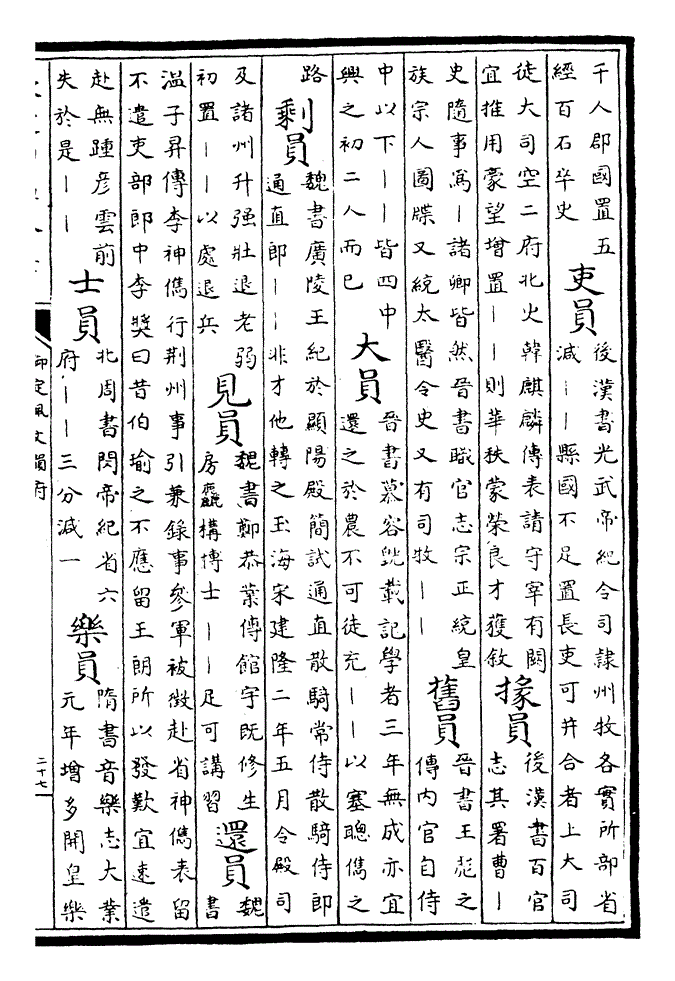 千人郡國置五
經百石卒史
吏員
後漢書光武帝紀令司隷州牧各實所部省
減｜｜縣國不足置長吏可并合者上大司
徒大司空二府北火韓麒麟傳表請守宰有闕
宜推用豪望增置｜｜則華秩蒙榮良才獲敘
掾員
後漢書百官
志其署曹｜
史隨事為｜諸卿皆然晉書職官志宗正統皇
族宗人圖牒又統太醫令史又有司牧｜｜
舊員
晉書王彪之
傳内官自侍
中以下｜｜皆四中
興之初二人而已
大員
晉書慕容皝載記學者三年無成亦宜
還之於農不可徒充｜｜以塞聰儁之
路
剩員
魏書廣陵王紀於顯陽殿簡試通直散騎常侍散騎侍郎
通直郎｜｜非才他轉之玉海宋建隆二年五月令殿司
及諸州升强壯退老弱
初置｜｜以處退兵
見員
魏書鄭恭業傳館宇既修生
房麤構博士｜｜足可講習
還員
魏
書
溫子昇傳李神儁行荆州事引兼錄事參軍被徵赴省神儁表留
不遣吏部郎中李奬曰昔伯瑜之不應留王朗所以發歎宜速遣
赴無踵彥雲前
失於是｜｜
士員
北周書閔帝紀省六
府｜｜三分減一
樂員
隋書音樂志大業
元年增多開皇樂
御定佩文韻府
二十七